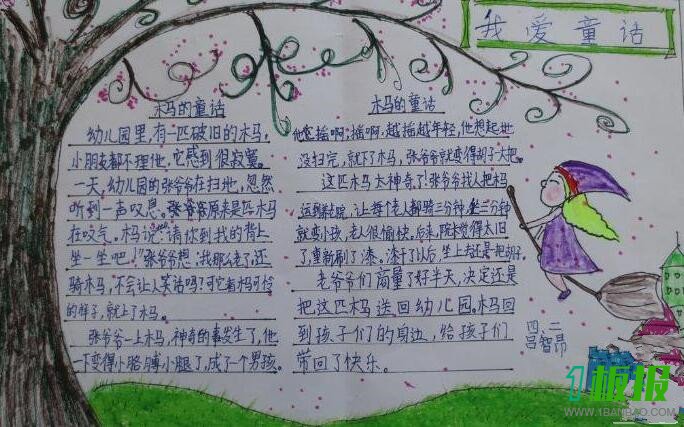 我爱童话
木马的童话
幼儿园里,有一匹破旧的木马,
小朋友都不理他,它感到很寂寞。
一天,幼儿园的张爷爷在扫地,忽然
听到一声叹息。张爷爷原来是匹木马
在叹气。木马说:“请你到我的背上
坐一坐吧!”张爷爷想:我那么老了,还
骑木马,不会让人笑话吗?可它看木马可怜
的样子,就上了木马。
张爷爷一上木马,神奇的事发生了,他
一下变得小胳膊小腿了,成了一个男孩。
木马的童话
他摇啊,摇啊,越摇越年轻,他想起地
没扫完,就下了木马,张爷爷就变得胡子大把。
这匹木马太神奇了!张爷爷找人把木马
运到老院,让每个老人都骑三分钟,坐三分钟
就变小孩,老人很愉快。后来,院长觉得太旧
了,重新刷了漆。漆干了以后,坐上去还是把胡子。
老爷爷们商量了好半天,决定还是
把这匹木马送回幼儿园。木马回
到孩子们的身边,给孩子们
带回了快乐。
四.二
吕智昂
1板报
WWW.1BANBAO.COM